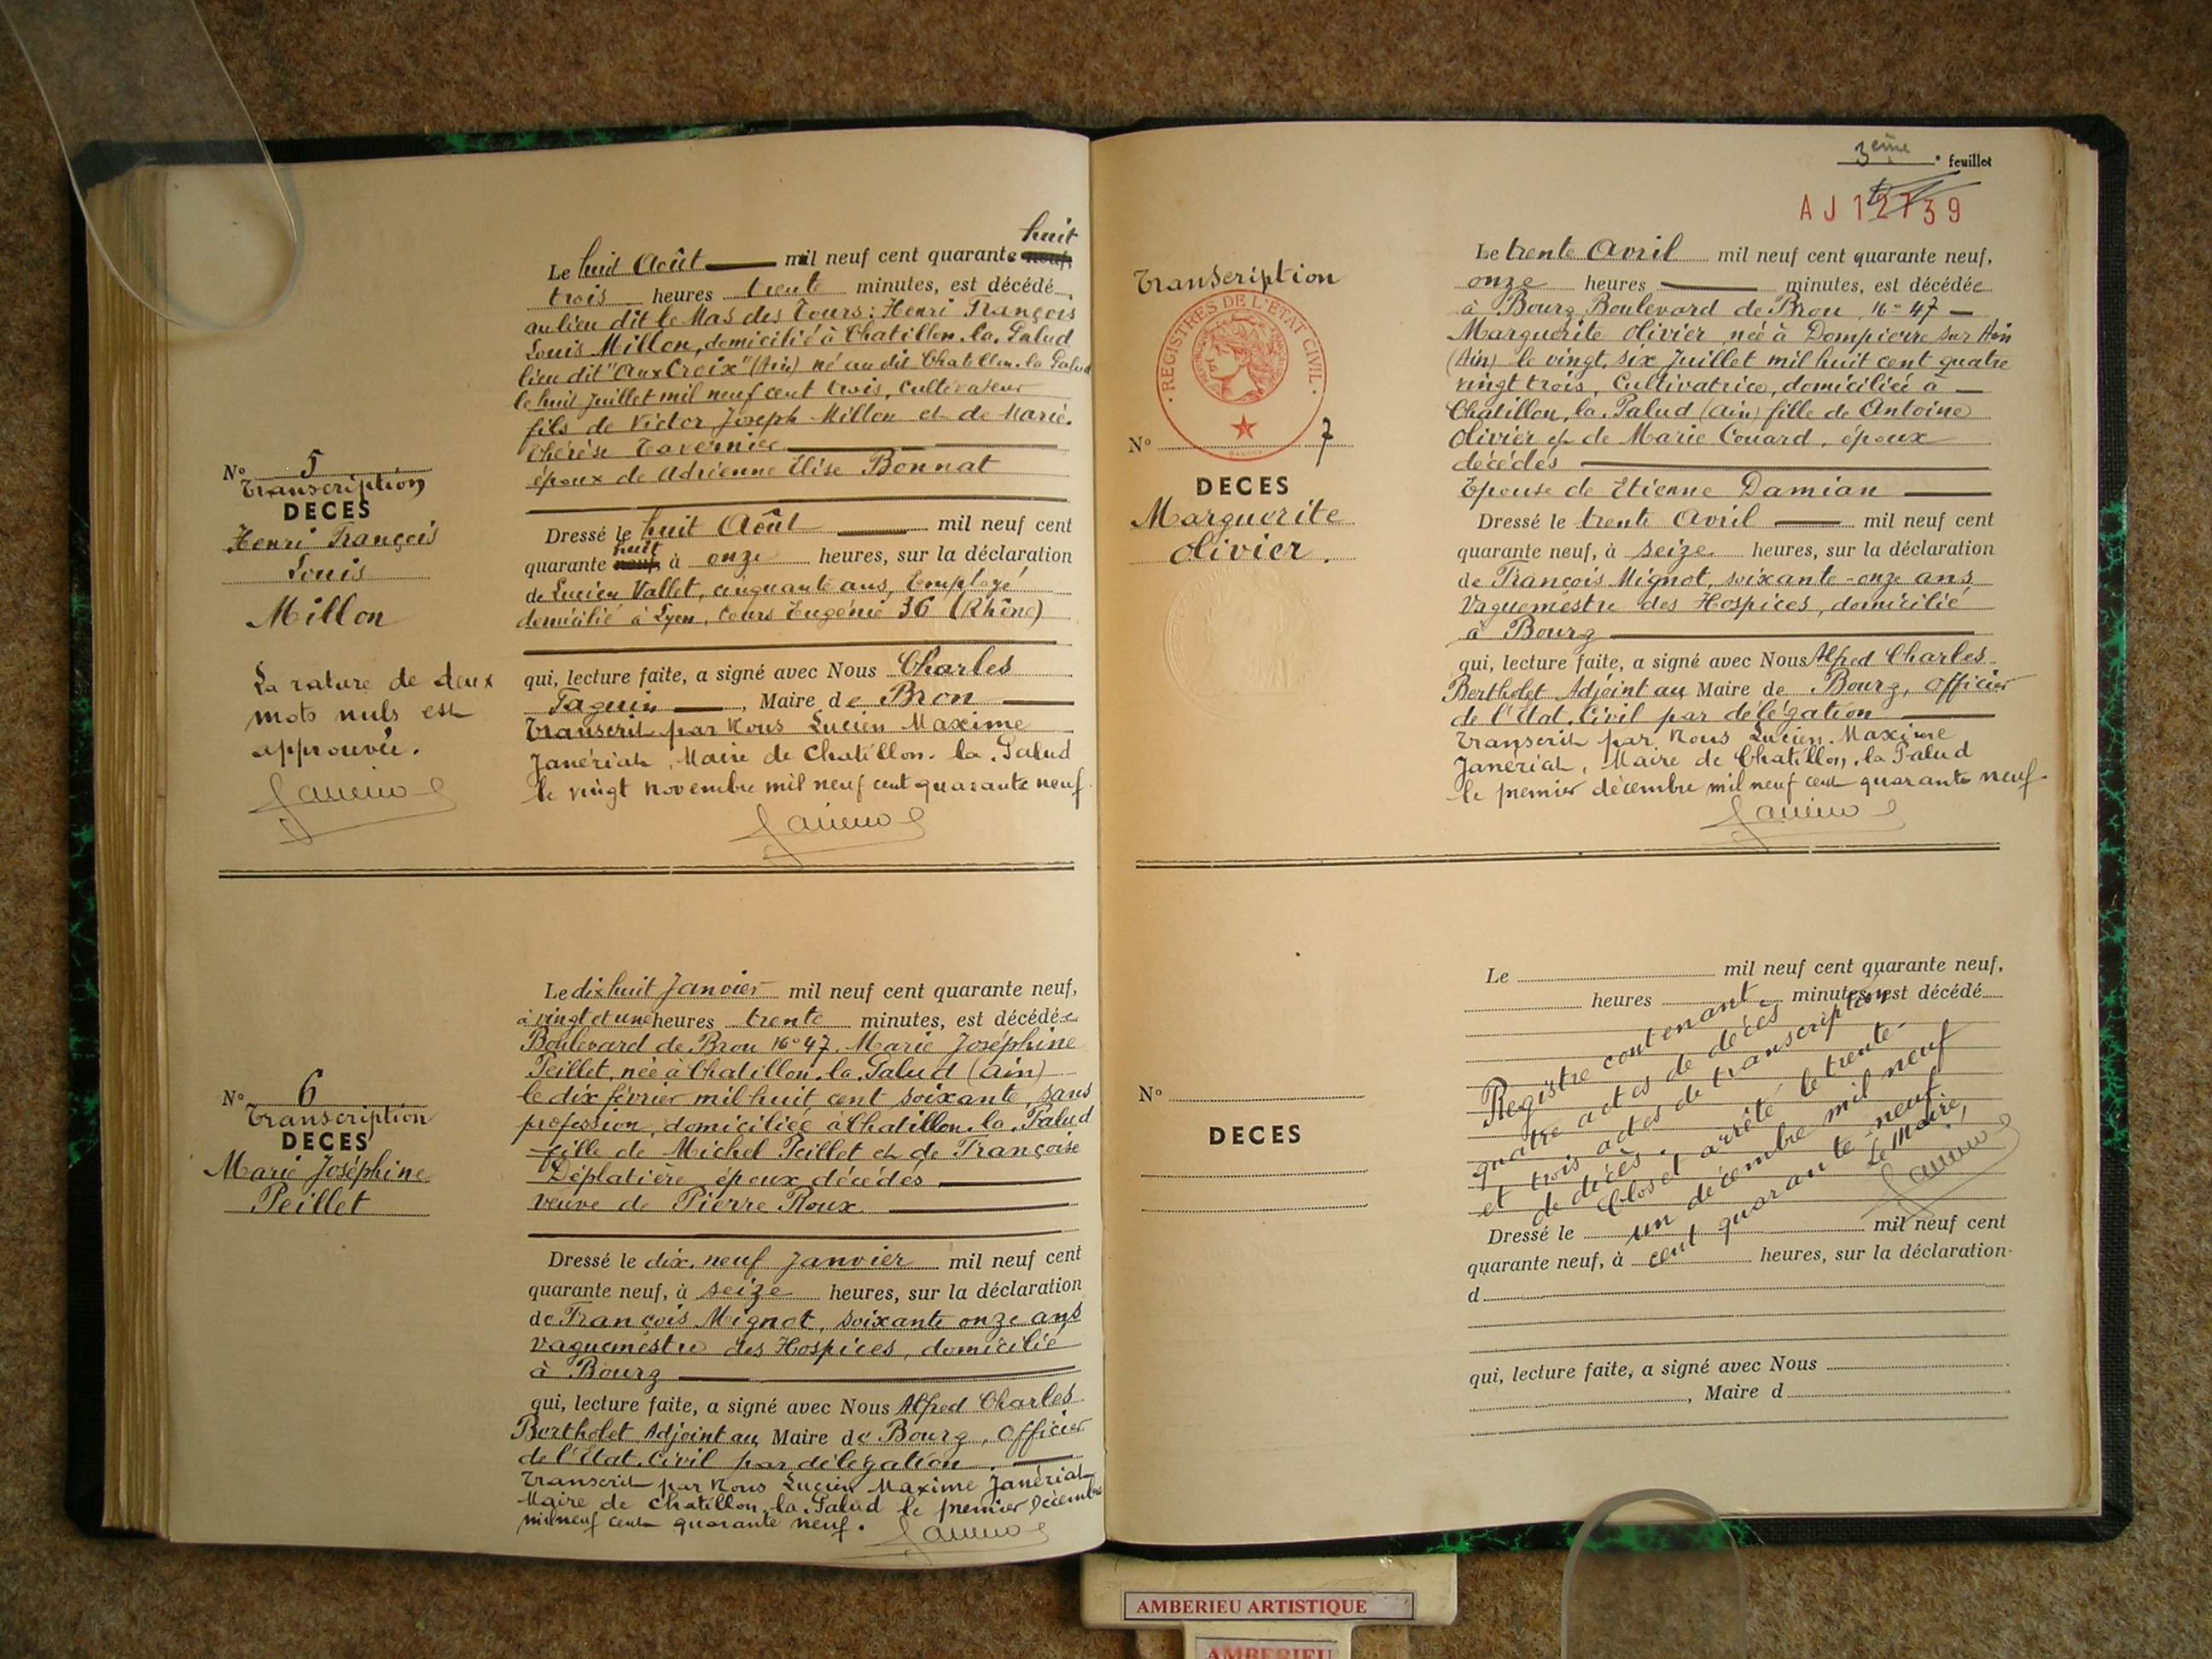 N° 5
Transcription
DECES
Henri François
Louis
Millon
La rature de deux
mots nuls est
approuvée.
huit
Le huit Août mil neuf cent quarante neuf,
trois heures trente minutes, est décédé
au lieu dit le Mas des Tours : Henri François
Louis Millon, domicilié à Chatillon.la.Palud
lieu dit "Aux Croix" (Ain) né au dit Chatillon.la Palud
le huit Juillet mil neuf cent trois, Cultivateur
fils de Victor Joseph Millon et de Marie.
Thérèse Tavernier
époux de Adrienne Elise Bonnat
Dressé le huit Août mil neuf cent
huit
quarante neuf, à onze heures, sur la déclaration
de Lucien Vallet, cinquante ans, Employé
domicilié à Lyon, Cours Eugénie 36 (Rhône)
qui, lecture faite, a signé avec Nous Charles
Taguin, Maire de Bron
Transcrit par Nous Lucien Maxime
Janériat, Maire de Chatillon.la.Palud
le vingt novembre mil neuf cent quarante neuf.
N° 6
Transcription
DECES
Marie Joséphine
Peillet
Le dix huit Janvier mil neuf cent quarante neuf,
à vingt et une heures trente minutes, est décédée
Boulevard de Brou 16-47. Marie Joséphine
Peillet, née à Chatillon.la.Palud (Ain)
le dix février mil huit cent soixante, sans
profession, domiciliée à Chatillon.la.Palud
fille de Michel Peillet et de Françoise
Déplatière époux décédés.
veuve de Pierre Roux
Dressé le dix.neuf Janvier mil neuf cent
quarante neuf, à seize heures, sur la déclaration
de François Mignot, soixante onze ans
vaguemestre des Hospices, domicilié
à Bourg
qui, lecture faite, a signé avec Nous Alfred Charles
Bertholet Adjoint au Maire de Bourg, Officier
de l'Etat.Civil par délégation.
Transcrit par Nous Lucien Maxime Janériat
Maire de Chatillon.la.Palud le premier Décembre
mil neuf cent quarante neuf.
3ème feuillet
AJ 12739
Transcription
REGISTRES DE L'ETAT CIVIL
N° 7
DECES
Marguerite
Olivier.
Le trente Avril mil neuf cent quarante neuf,
onze heures minutes, est décédée
à Bourg Boulevard de Brou, 16-47
Marguerite Olivier née à Dompierre sur Ain
(Ain) le vingt.six Juillet mil huit cent quatre
vingt trois, Cultivatrice, domiciliée à
Chatillon.la.Palud (Ain) fille de Antoine
Olivier et de Marie Couard, époux
décédés
Epouse de Etienne Damian
Dressé le trente Avril mil neuf cent
quarante neuf, à seize heures, sur la déclaration
de François Mignot, soixante-onze ans
Vaguemestre des Hospices, domicilié
à Bourg
qui, lecture faite, a signé avec Nous Alfred Charles
Bertholet Adjoint au Maire de Bourg, Officier
de l'Etat.Civil par délégation
Transcrit par Nous Lucien.Maxime
Janériat, Maire de Chatillon.la Palud
le premier décembre mil neuf cent quarante neuf.
N°
DECES
Le mil neuf cent quarante neuf,
heures minutes, est décédé
Registre contenant
quatre actes de décès
et trois actes de transcription
de décès.
Clos et arrêté le trente-
un décembre mil neuf
cent quarante-neuf
Le Maire,
Dressé le mil neuf cent
quarante neuf, à heures, sur la déclaration
d
qui, lecture faite, a signé avec Nous
, Maire d
AMBERIEU ARTISTIQUE
AMBERIEU